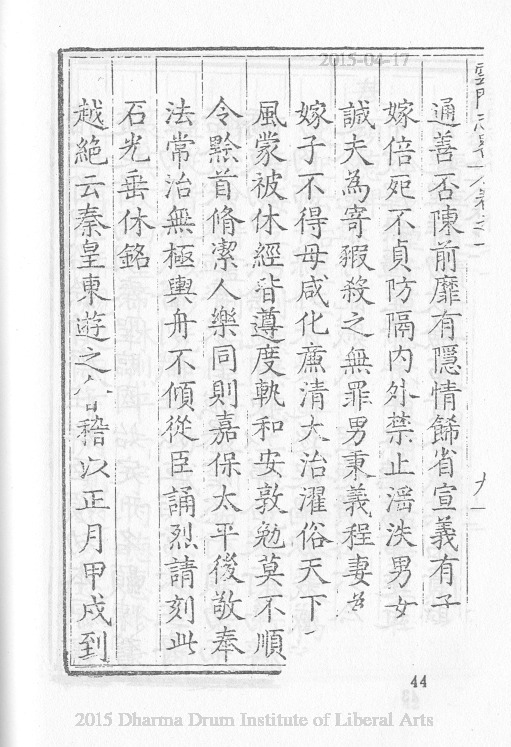 2015-04-17
雲門志畧 卷之一
九
通善否陳前靡有隱情餙省宣義有子
嫁倍死不貞防隔内外禁止滛泆男女
誠夫為寄豭殺之無罪男秉義程妻
嫁子不得母咸化亷清大治濯俗天下
風蒙被休經皆遵度軌和安敦勉莫不順
令黔首脩潔人樂同則嘉保太平後敬奉
法常治無極輿舟不傾從臣誦烈請刻此
石光垂休銘
越絶云秦皇東遊之會稽以正月甲戍到
44
2015 Dharma Drum Institute of Liberal Arts